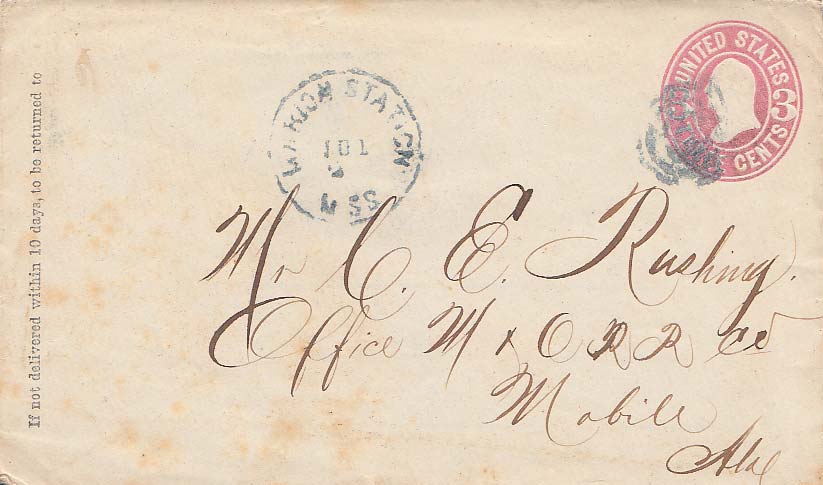 If not delivered within 10 days, to be returned to
UNITED STATES
3
CENTS
MARION STATION
MISS
Mr C. E. Rushing.
Office M & O R R Co
Mobile
Ala